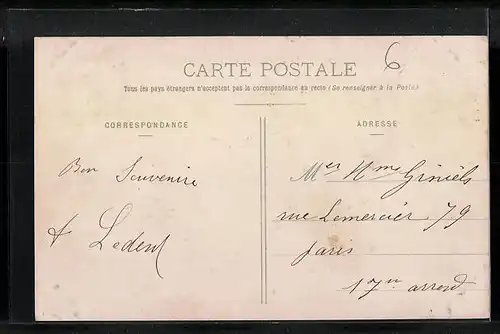 6
CARTE POSTALE
Tous les pays étrangers n'acceptent pas la correspondance au recto (Se renseigner à la Poste)
CORRESPONDANCE
Bon Souvenire
Ledent
ADRESSE
Giniels
rue Lemercier 79
paris
17 arrond